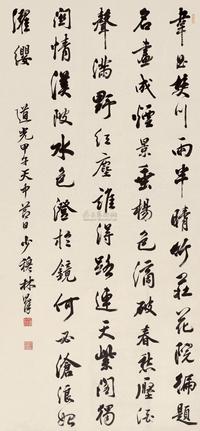 韋曲樊川雨半晴竹莊花院徧題
名畫成煙景垂楊色滴破春愁壓酒
聲滿野紅塵誰得路連天紫閣獨
關情渼陂水色澄於鏡何必滄浪始
濯纓
道光甲午天中節日少穆林則徐